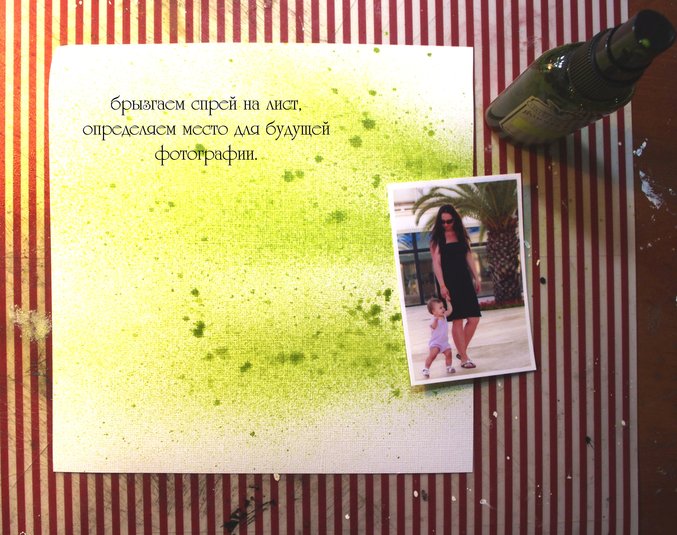 брызгаем спрей на лист,
определяем место для будущей
фотографии.